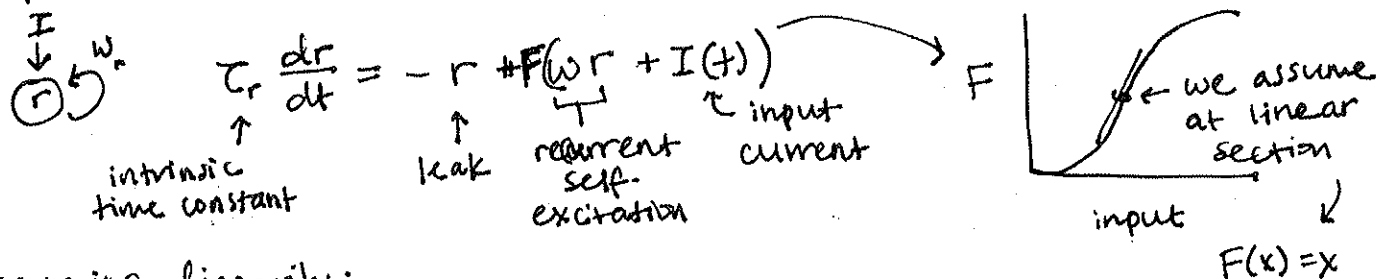 I
r
w_r
τ_r dr/dt = - r + F(wr + I(t))
intrinsic
time constant
leak
recurrent
self-
excitation
input
current
F
we assume
at linear
section
input
F(x) = x